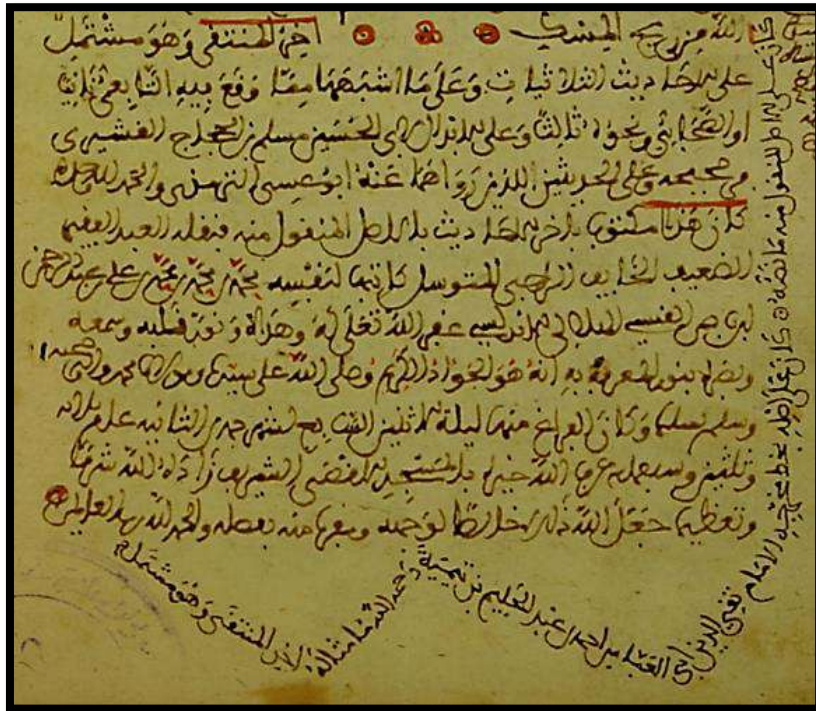 الله من ريح المسك آخر المنتقى وهو مشتمل
على الأحاديث الثلاثيات وعلى ما أشبهها مما وقع فيه التابعي ثانيا
أو الصحابي ونحوه ثالثا وعلى الأبدال لأبي الحسين مسلم بن الحجاج القشيري
في صحيحه وعلى الحديثين اللذين رواهما عنه أبو عيسى الترمذي والحمد لله وحده
كان هذا مكتوبا بآخر الأحاديث بالأصل المنقول منه فنقله العبد الفقير
الضعيف الخايف الراجي المتوسل كاتبها لنفسه محمد بن محمد بن محمد بن علي بن عبد الرحمن
القيسي الأندلسي غفر الله تعلى له وهداه ونور قلبه وسمعه
وبصره بنور المعرفة به انه هو الجواد الكريم وصلى الله على سيدنا ومولانا محمد وآله وصحبه
وسلم تسليما وكان الفراغ منها ليلة الاثنين السابع لشهر جمدى الثانية عام ثلاثة
وثلثين وسبعماية عرفنا الله خيره بالمسجد الأقصى الشريف زاده الله شرفا
وتعظيما جعل الله ذلك خالصا لوجهه ونفعنا منه بفضله والحمد لله رب العالمين
كان على الأصل المنقول منه ما نصه كان على أصله بخط مخرجه الامام
تقي الدين أبي العباس احمد بن عبد الحليم بن تيمية
رحمه الله ما مثاله آخر المنتقى وهو مشتمل